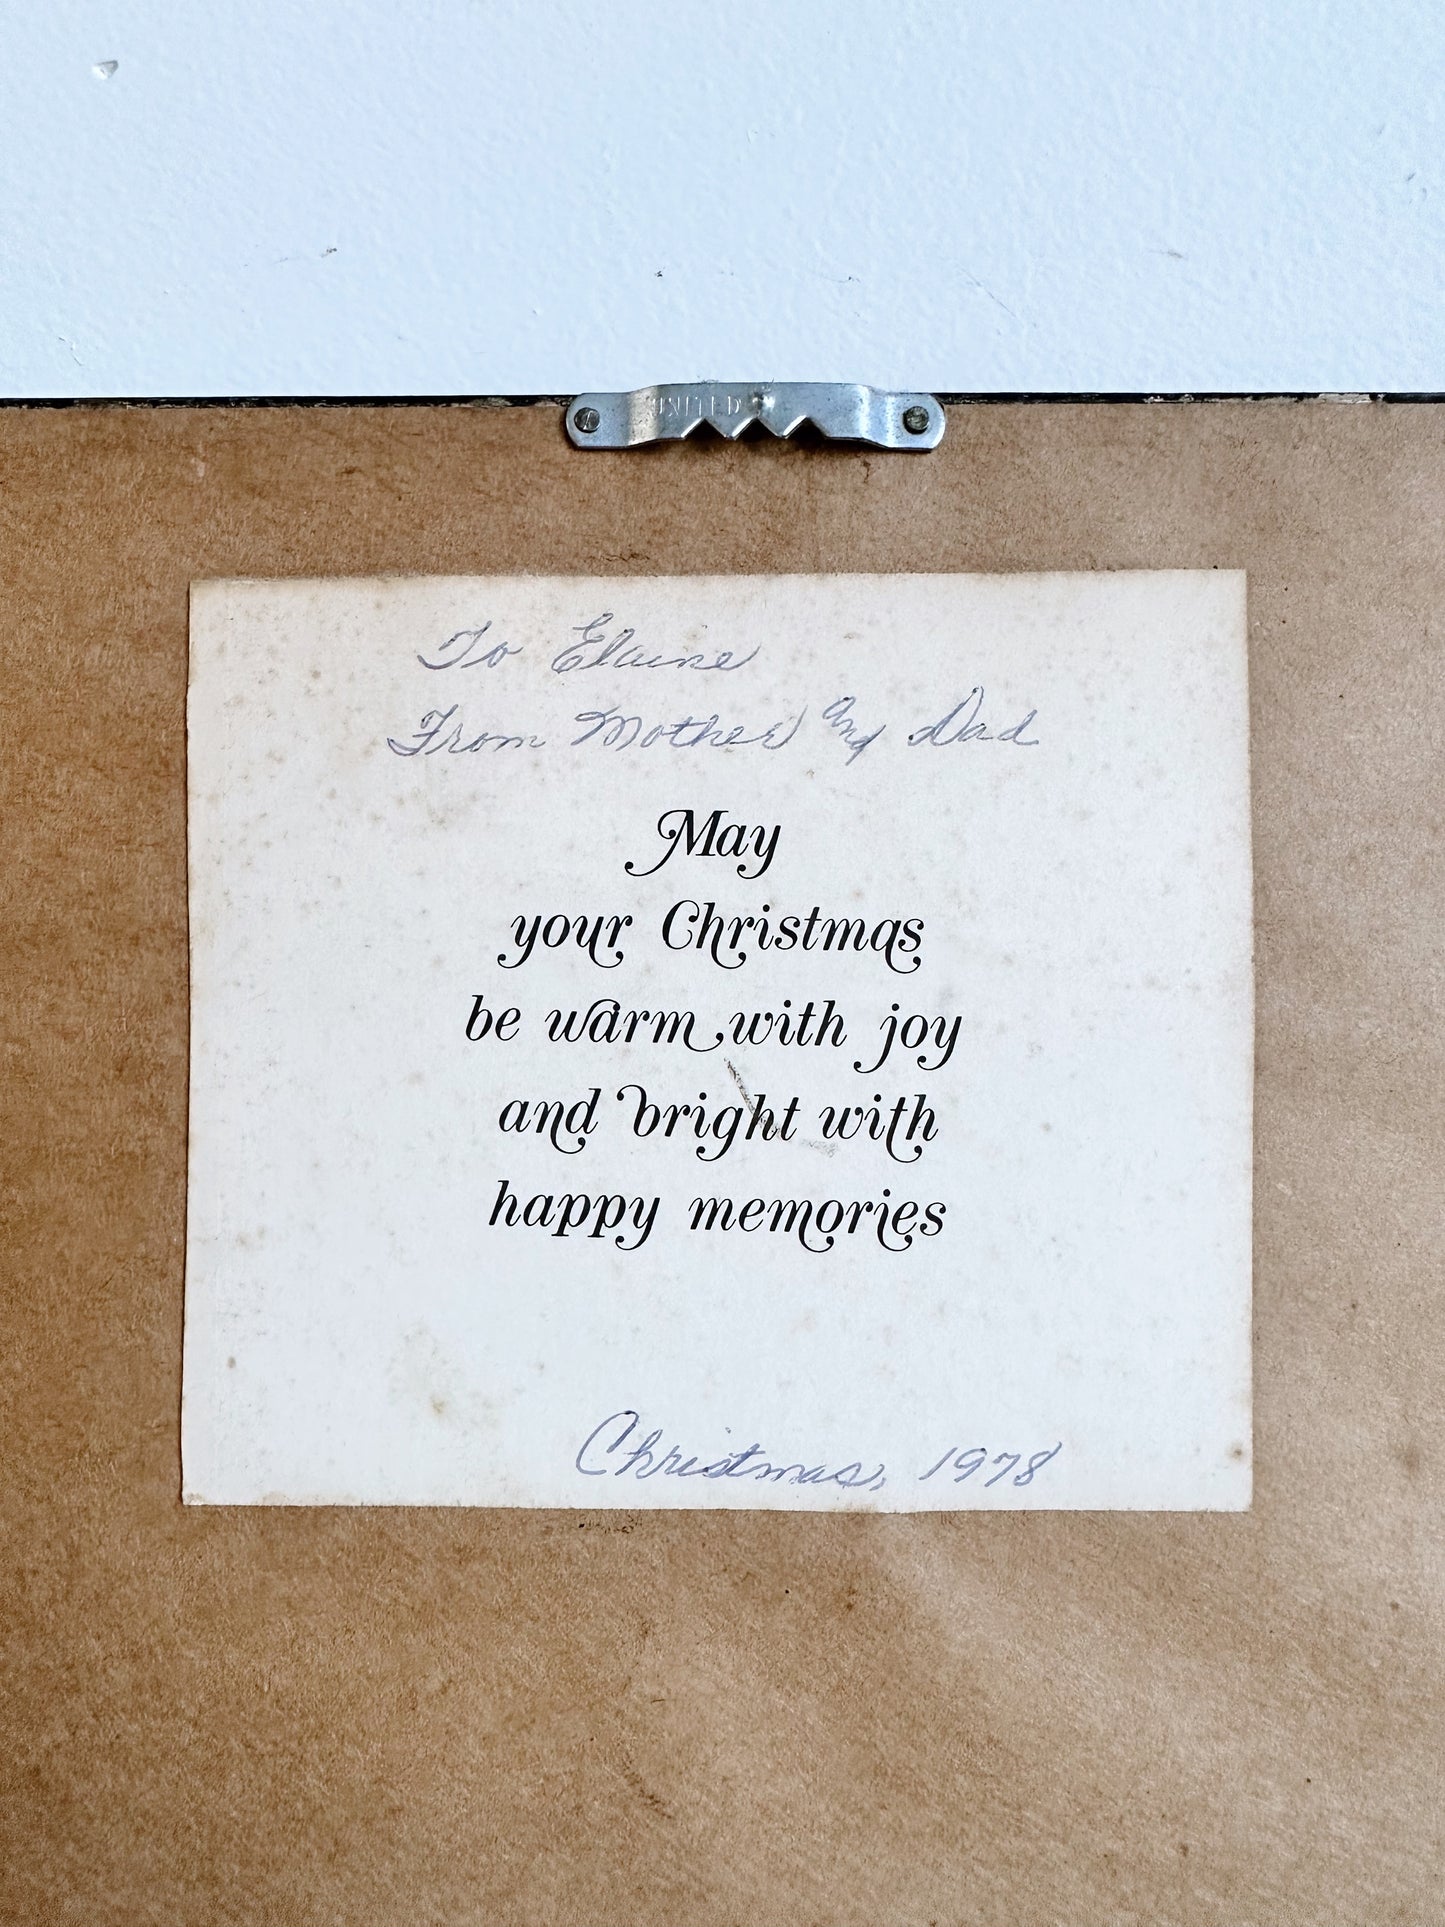 UNITED
To Elaine
From Mother and Dad
May
your Christmas
be warm with joy
and bright with
happy memories
Christmas, 1978